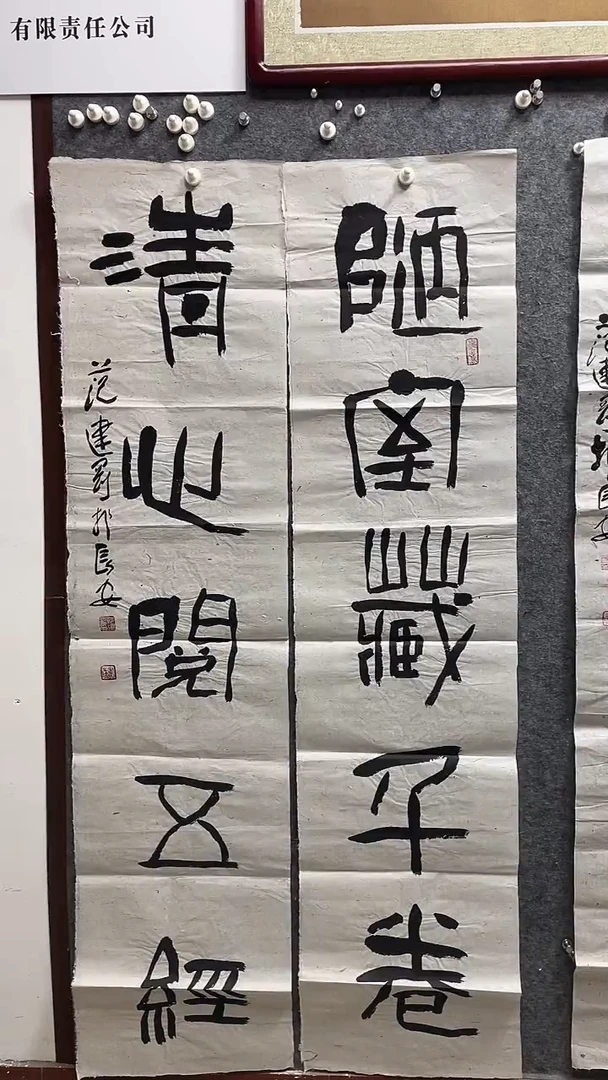 有限责任公司
陋室藏千卷
清心閱五經
范建爵於長安